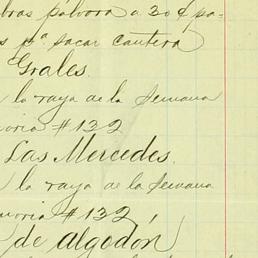 bras pólvora a 30 ¢ pa-
s pª. sacar cantera
Grales.
la raya de la Semana
moria # 132
Las Mercedes.
la raya de la Semana
moria # 132,
de algodón